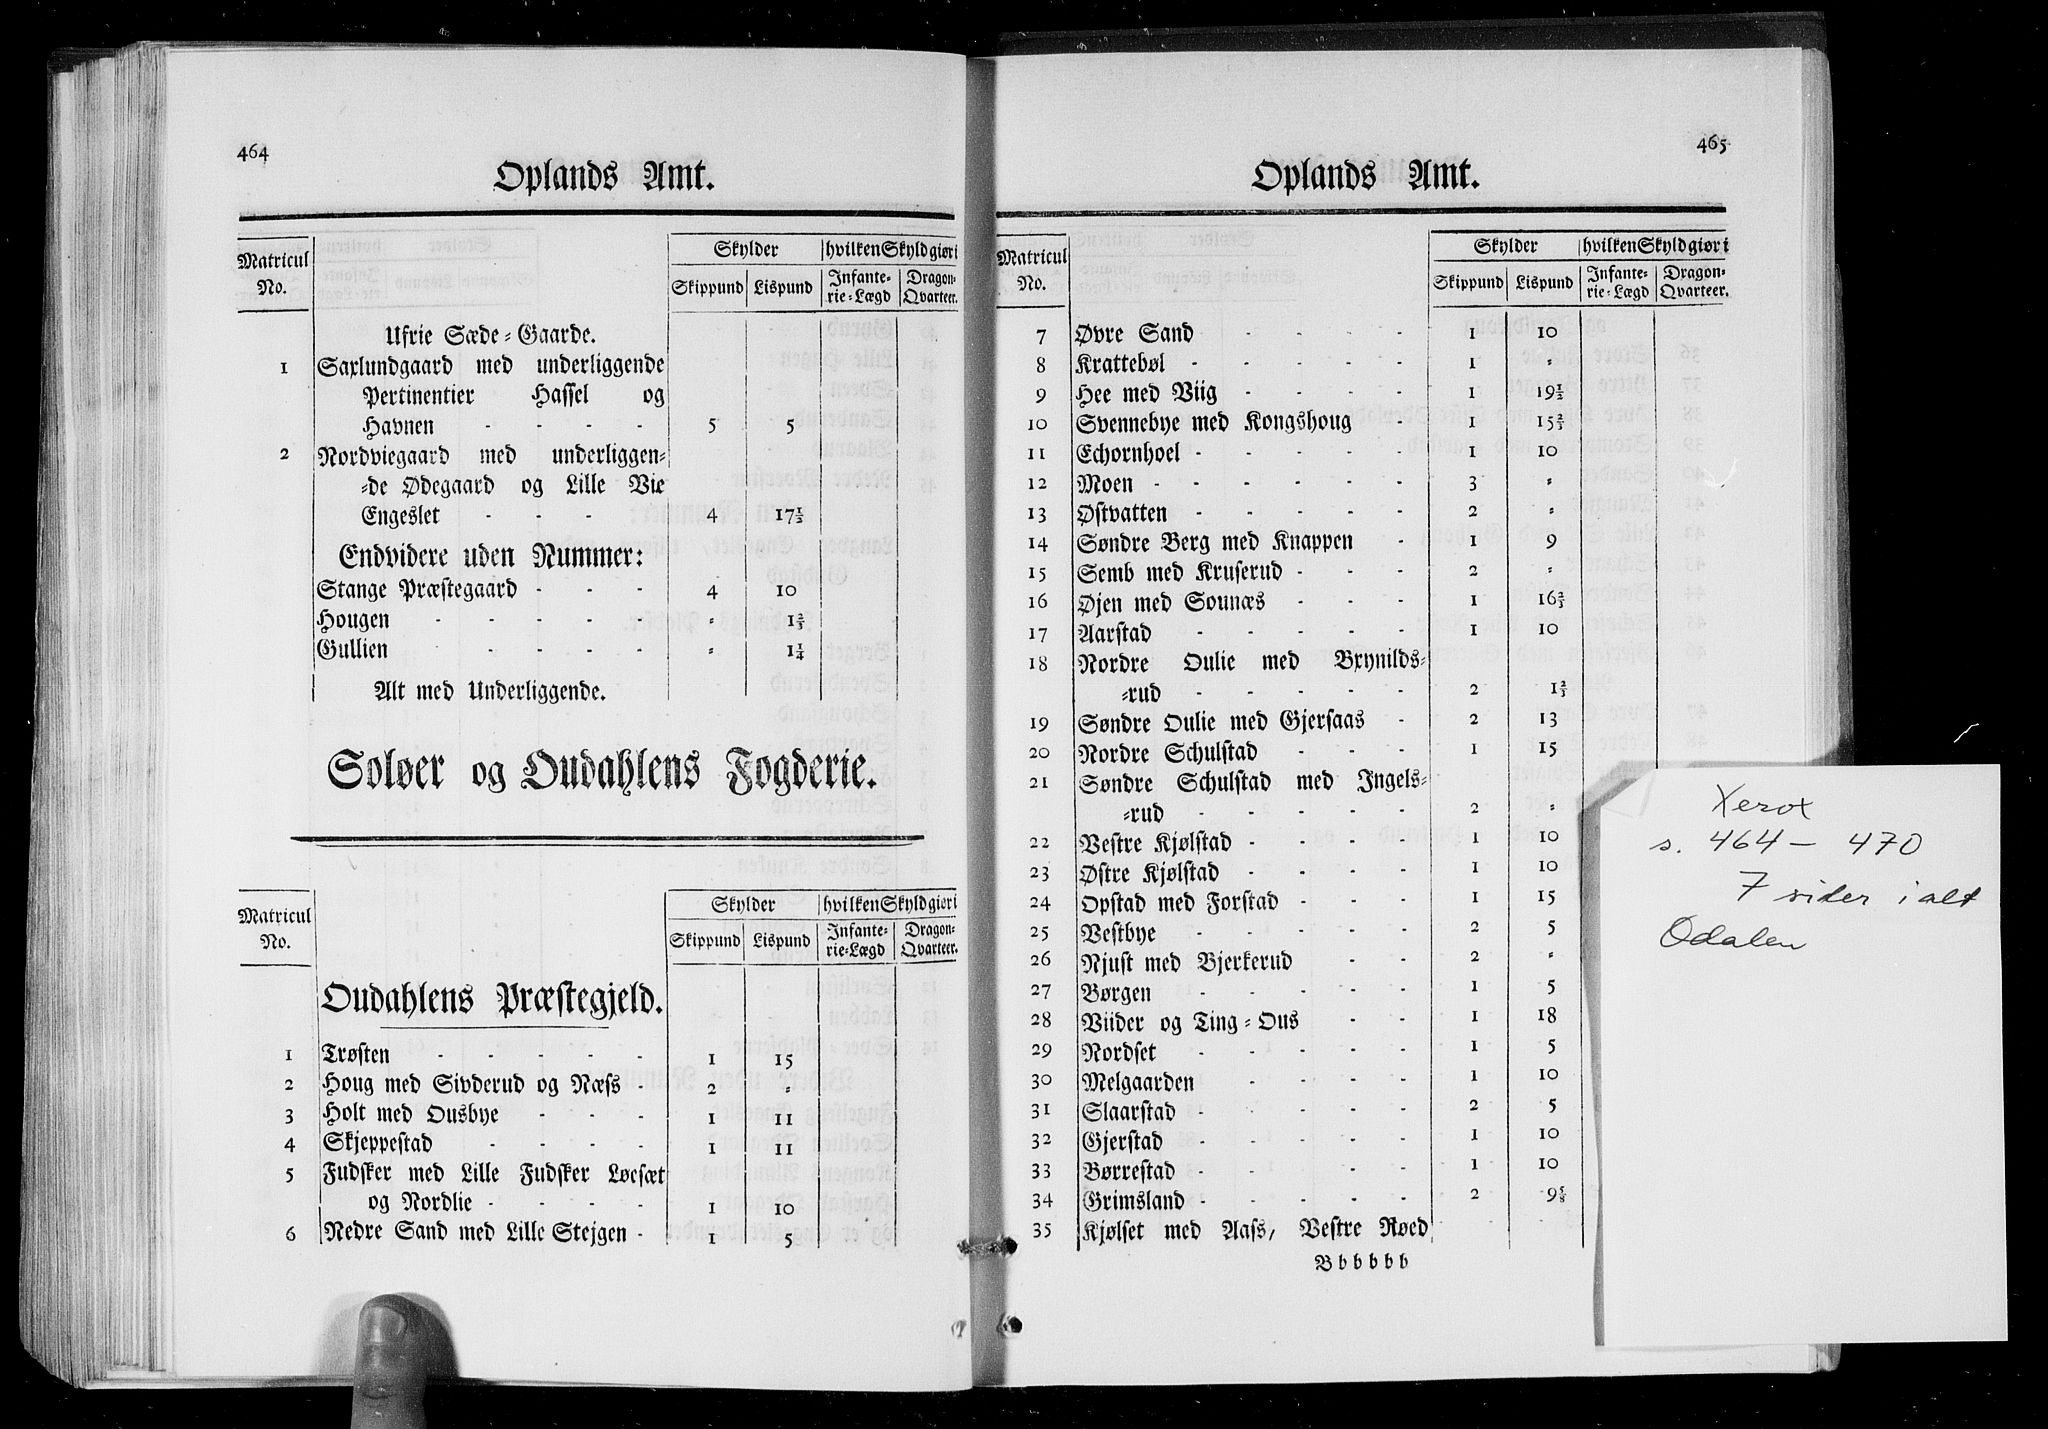 464
Oplands Amt.
Matricul No. | Skylder | hvilken Skyld giør i
Skippund | Lispund | Infante-rie-Lægd | Dragon-Qvarteer.
Ufrie Sæde-Gaarde.
1 Saxlundgaard med underliggende
Pertinentier Hassel og
Havnen - - - - 5 5
2 Nordviegaard med underliggen-
-de Ødegaard og Lille Vie
Engeslet - - - 4 17 1/2
Endvidere uden Nummer:
Stange Præstegaard - - - 4 10
Hougen - - - - - " 1 2/3
Gullien - - - - - " 1 1/4
Alt med Underliggende.
Soløer og Oudahlens Fogderie.
Matricul No. | Skylder | hvilken Skyld giør i
Skippund | Lispund | Infante-rie-Lægd | Dragon-Qvarteer.
Oudahlens Præstegjeld.
1 Trøsten - - - - - 1 15
2 Houg med Sivderud og Næss - 2 "
3 Holt med Ousbye - - - 1 11
4 Skjeppestad - - - - 1 11
5 Fudsker med Lille Fudsker Løcsæt
og Nordlie - - - - 1 10
6 Nedre Sand med Lille Stejgen - 1 5
465
Oplands Amt.
Matricul No. | Skylder | hvilken Skyld giør i
Skippund | Lispund | Infante-rie-Lægd | Dragon-Qvarteer.
7 Øvre Sand - - - - - 1 10
8 Krattebøl - - - - - 1 "
9 Hee med Viig - - - - 1 19 1/2
10 Svennebye med Kongshoug - 1 15 2/3
11 Echornhoel - - - - - 1 10
12 Moen - - - - - - 3 "
13 Østvatten - - - - - 2 "
14 Søndre Berg med Knappen - 1 9
15 Semb med Kruserud - - - 2 "
16 Øjen med Sounæs - - - 1 16 2/3
17 Aarstad - - - - - 1 10
18 Nordre Oulie med Brynilds-
-rud - - - - - 2 1 2/3
19 Søndre Oulie med Gjersaas - 2 13
20 Nordre Schulstad - - - 1 15
21 Søndre Schulstad med Ingels-
-rud - - - - - 2 "
22 Vestre Kjølstad - - - - 1 10
23 Østre Kjølstad - - - - 1 10
24 Opstad med Forstad - - - 1 15
25 Vestbye - - - - - 2 5
26 Njust med Bjerkerud - - 2 "
27 Børgen - - - - - 1 5
28 Viider og Ting-Ous - - 1 18
29 Nordset - - - - - 1 5
30 Melgaarden - - - - 1 10
31 Slaarstad - - - - - 2 5
32 Gjerstad - - - - - 1 10
33 Børrestad - - - - - 1 10
34 Grimsland - - - - - 2 9 5/8
35 Kjølset med Aass, Vestre Røed
Bbbbbb
Xerox
s. 464 - 470
7 sider i alt
Odalen